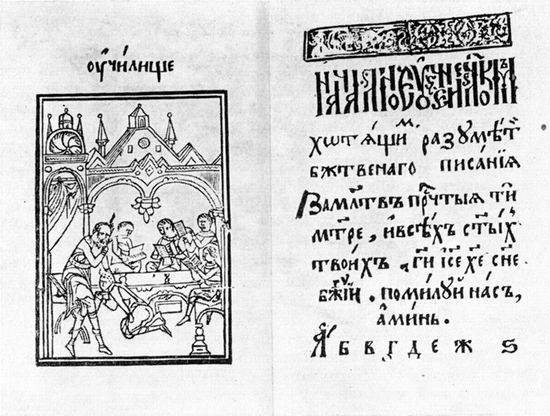 оучилище
хотѧщиⷨ разꙋмѣтⷤ
бжⷭ҇твенаго писанїѧ
За мл҃твъ прⷱ҇тыѧ ти
мт҃ре, и всѣхъ ст҃ыⷯ
твоихъ, г҃и іс҃е хе҃ сн҃е
бж҃їй. помилꙋй насъ,
аминь.
А б в г д е ж ѕ